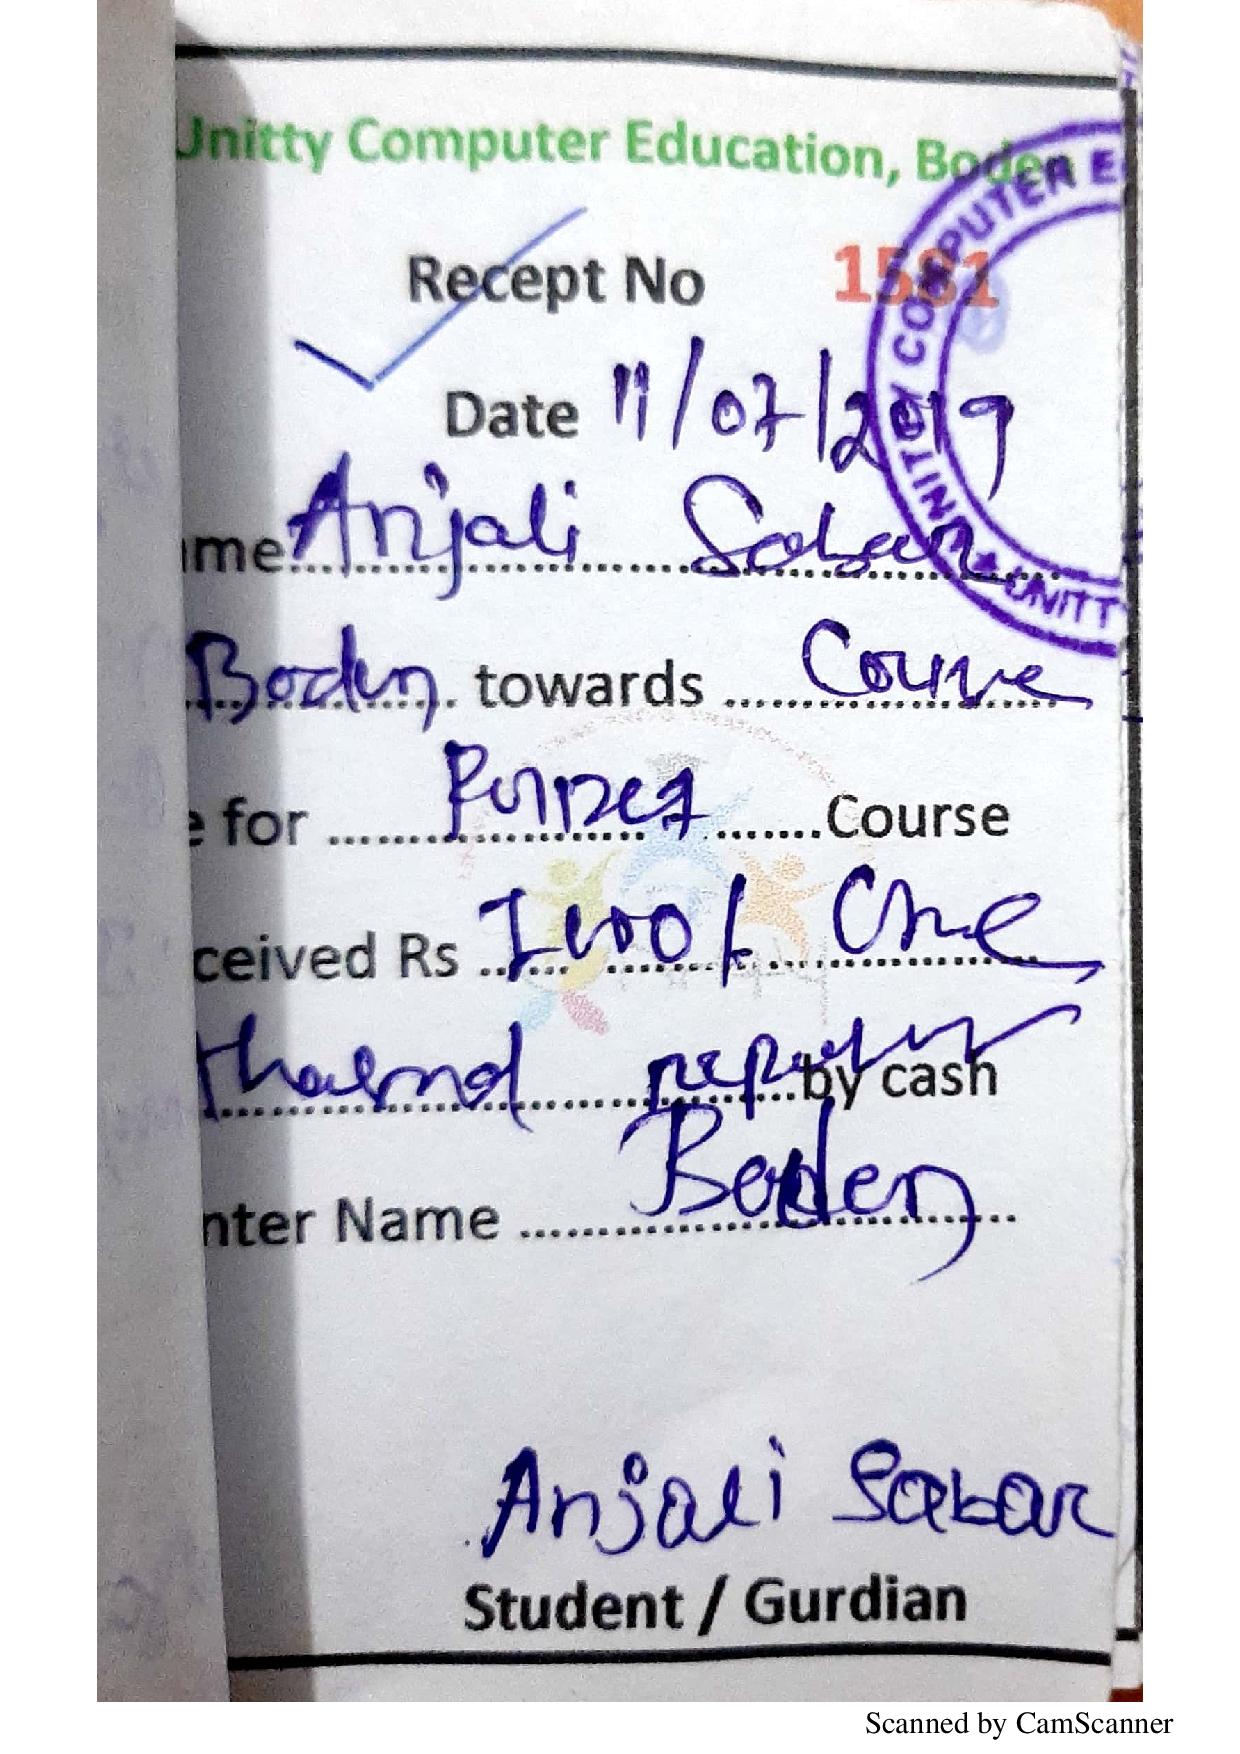 Unitty Computer Education, Boden
Recept No 1581
Date 11/07/2019
ame Anjali Sabar
Boden towards Course
e for Course
ceived Rs 1000/- One
thousand rupees by cash
nter Name Boden
Anjali Sabar
Student / Gurdian
UNITTY COMPUTER E
UNITT
Scanned by CamScanner